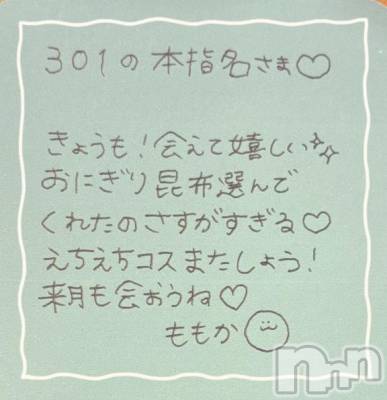 301の本指名さま♡
きょうも!会えて嬉しい✨
おにぎり昆布選んで
くれたのさすがすぎる♡
えちえちコスまたしょう!
来月も会おうね♡
ももか